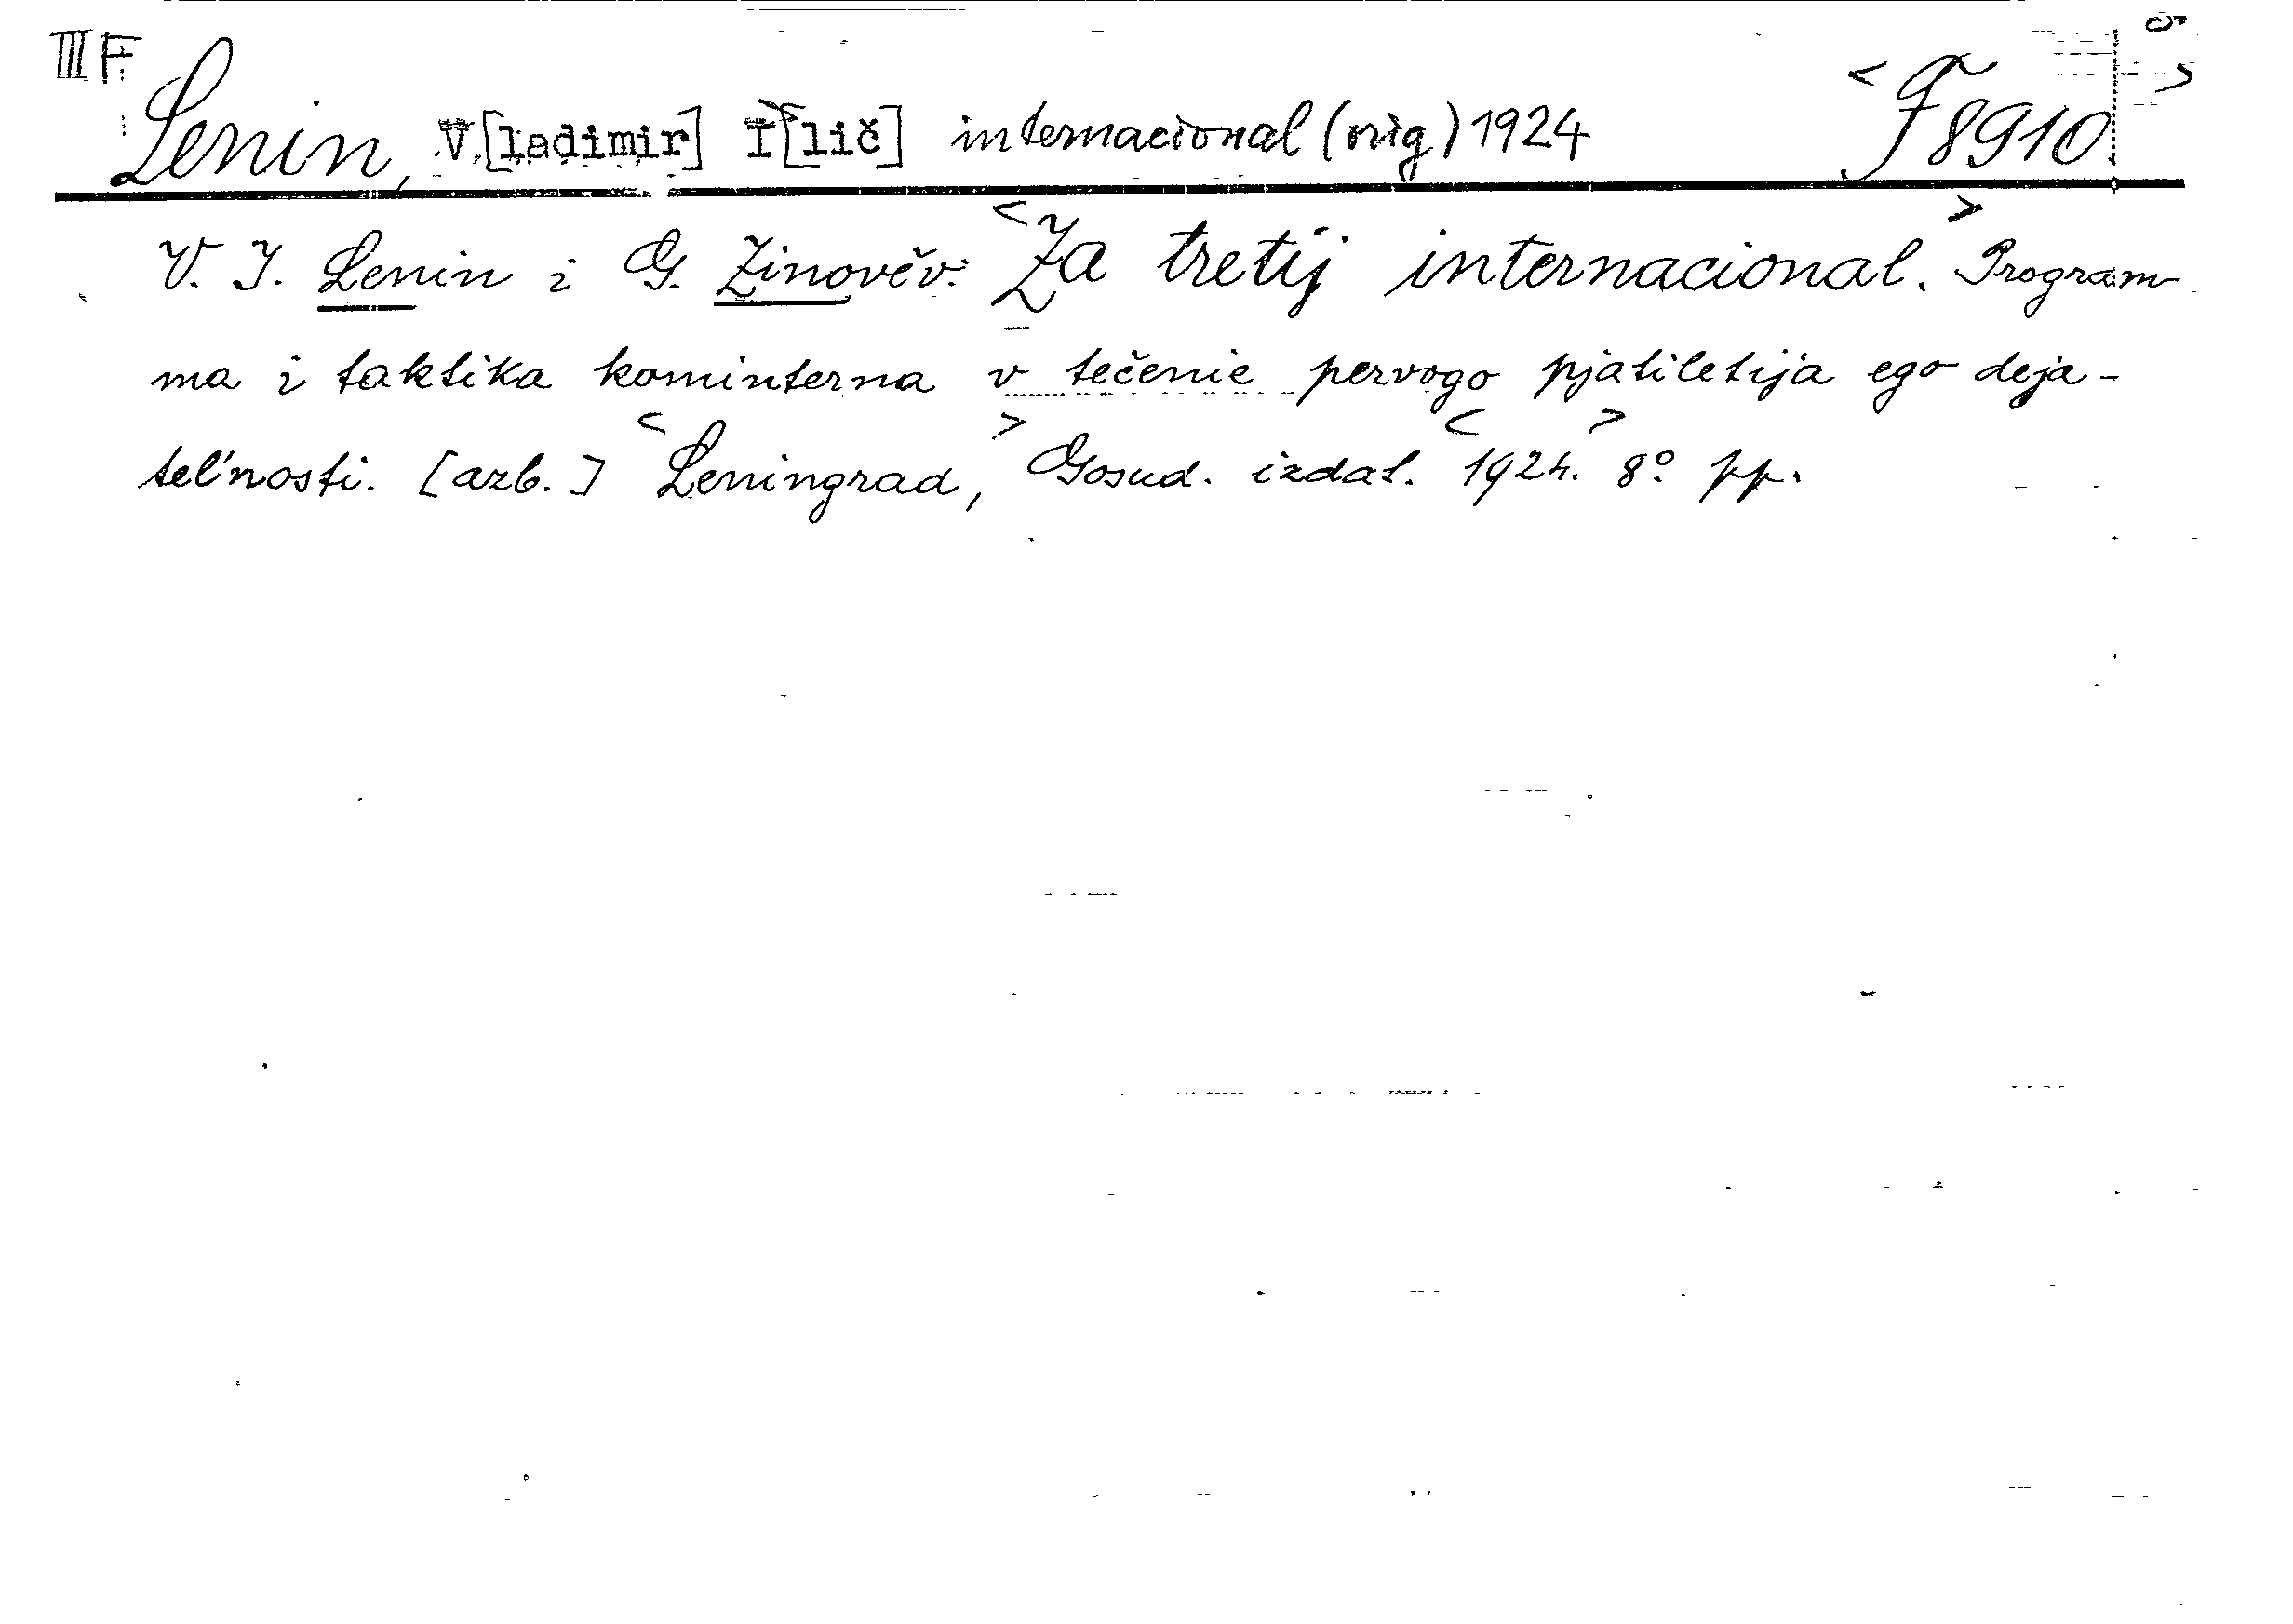 III F
Lenin, V[ladimir] I[lič] internacional (orig) 1924 <F 8910>
V. I. Lenin i G. Zinověv: <Za tretij internacional.> Program-
ma i taktika kominterna v tečenie pervogo pjatiletija ego deja-
tel'nosti. [azb.] <Leningrad,> Gosud. izdat. <1924.> 8° pp.